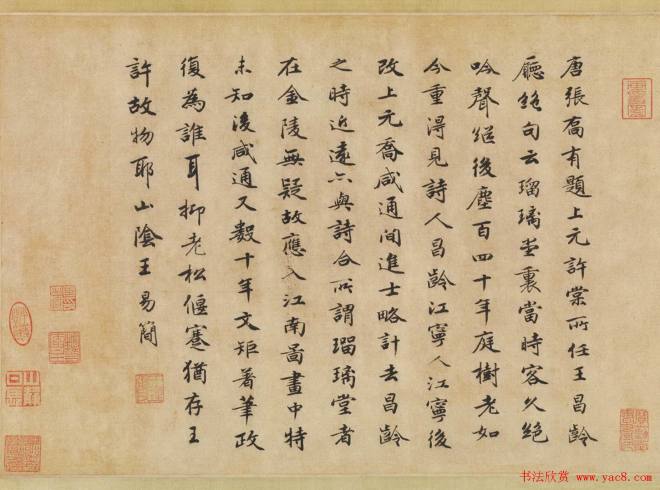 唐張喬有題上元許棠所任王昌齡
廳絶句云瑠璃堂裏當時客久絶
吟聲繼後塵百四十年庭樹老如
今重得見詩人昌齡江寧人江寧後
改上元喬咸通間進士略計去昌齡
之時近遠亦與詩合所謂瑠璃堂者
在金陵無疑故應入江南圖畫中特
未知後咸通又數十年文矩著筆政
復為誰耳抑老松偃蹇猶存王
許故物耶山陰王易簡
书法欣赏 www.yac8.com